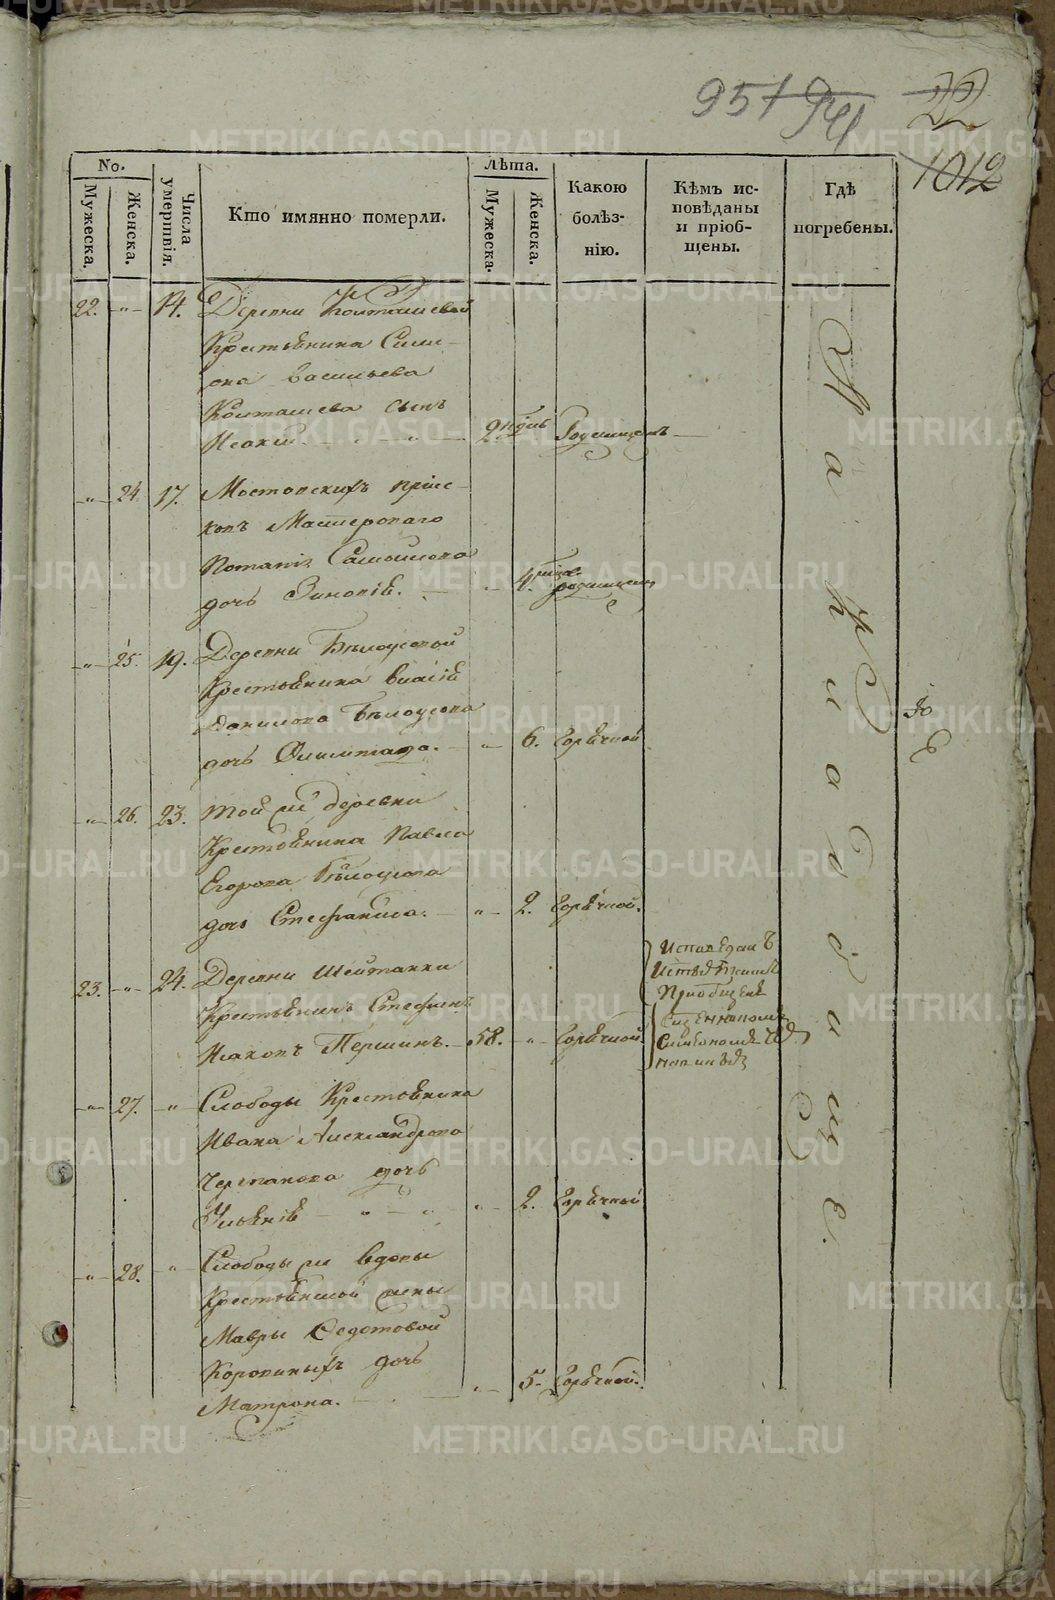 951 941 22
1012
No.
Мужеска.
Женска.
Числа умертвія.
Кто имянно померли.
Лѣта.
Мужеска.
Женска.
Какою болѣз-
нію.
Кѣмъ ис-
повѣданы
и пріоб-
щены.
Гдѣ
погребены.
22. -"- 14. Деревни Колташевой
Крестьянина Сими-
она Васильева
Колташева сынъ
Исакій 2 нѣдѣль Родимцемъ
-"- 24. 17. Мостовскихъ пріис-
ковъ Мастероваго
Потапія Самойлова
дочь Зиновія. 4. родимцемъ
-"- 25. 19. Деревни Бѣлоусовой
Крестьянина
Данилова Бѣлоусова
дочь Олимпіада. -"- 6. Горячкой
-"- 26. 23. Той же деревни
Крестьянина Павла
Егорова Бѣлоусова
дочь Стефанида. -"- 2. Горячкой.
23. -"- 24. Деревни Шейтанки
Крестьянинъ Стефанъ
Исаковъ Першинъ. 58. -"- Горячкой.
Исповеданъ
Приобщенъ
-"- 27. -"- Слободы Крестьянина
Ивана Александрова
Черпанова дочь
Ульянія -"- 2. Горячкой
-"- 28. -"- Слободы же вдовы
Крестьянской жены
Мавры Федотовой
Коровиныхъ дочь
Матрона. -"- 5. Горячкой.
На кладбище.
METRIKI.GASO-URAL.RU